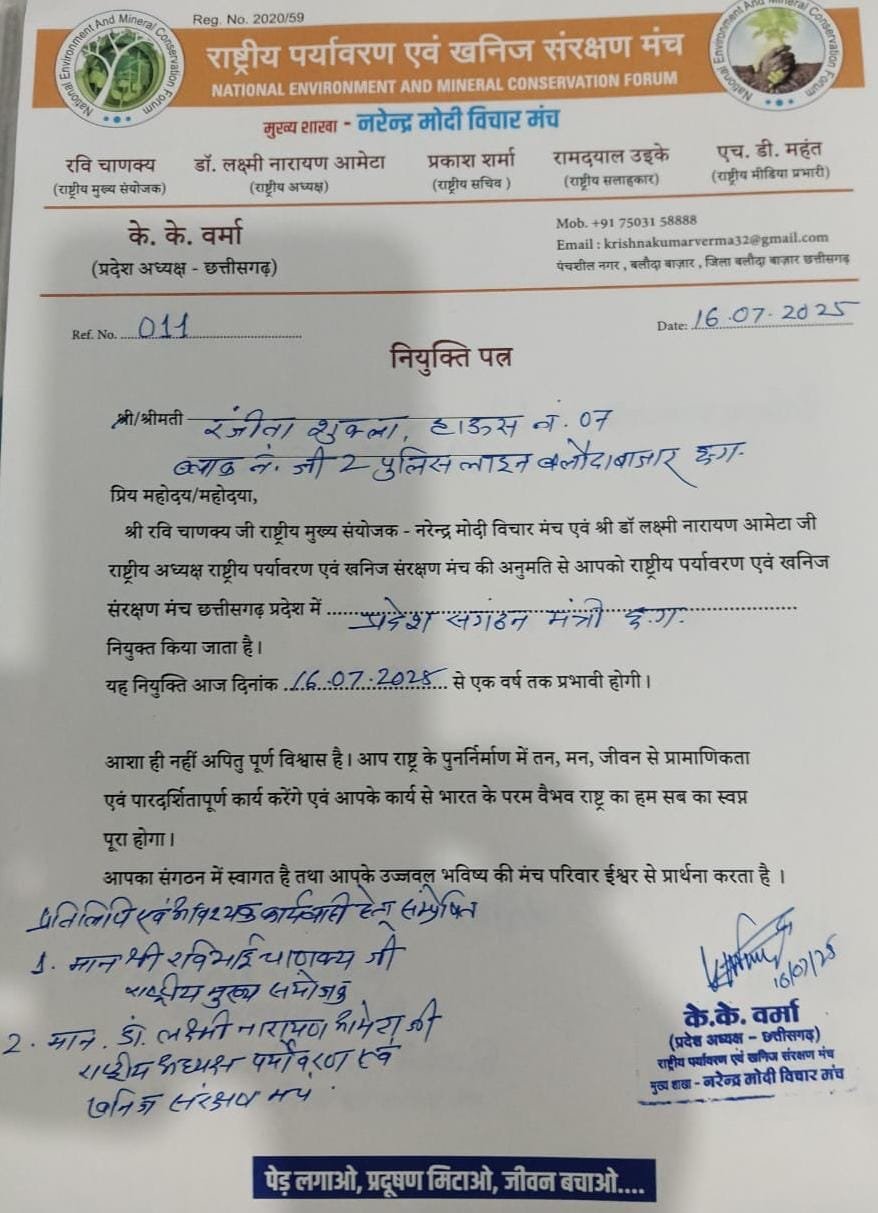 Reg. No. 2020/59
National Environment And Mineral Conservation Forum
राष्ट्रीय पर्यावरण एवं खनिज संरक्षण मंच
NATIONAL ENVIRONMENT AND MINERAL CONSERVATION FORUM
National Environment And Mineral Conservation Forum
मुख्य शाखा - नरेन्द्र मोदी विचार मंच
रवि चाणक्य डॉ. लक्ष्मी नारायण आमेटा प्रकाश शर्मा रामदयाल उइके एच. डी. महंत
(राष्ट्रीय मुख्य संयोजक) (राष्ट्रीय अध्यक्ष) (राष्ट्रीय सचिव ) (राष्ट्रीय सलाहकार) (राष्ट्रीय मीडिया प्रभारी)
के. के. वर्मा
(प्रदेश अध्यक्ष - छत्तीसगढ़)
Mob. +91 75031 58888
Email : krishnakumarverma32@gmail.com
पंचशील नगर , बलौदा बाज़ार , जिला बलौदा बाज़ार छत्तीसगढ़
Ref. No. 011
Date: 16.07.2025
नियुक्ति पत्र
श्री/श्रीमती रंजीता शुक्ला, हाऊस नं. 07
ब्लाक नं. जी 2 पुलिस लाइन बलौदाबाजार छ.ग.
प्रिय महोदय/महोदया,
श्री रवि चाणक्य जी राष्ट्रीय मुख्य संयोजक - नरेन्द्र मोदी विचार मंच एवं श्री डॉ लक्ष्मी नारायण आमेटा जी
राष्ट्रीय अध्यक्ष राष्ट्रीय पर्यावरण एवं खनिज संरक्षण मंच की अनुमति से आपको राष्ट्रीय पर्यावरण एवं खनिज
संरक्षण मंच छत्तीसगढ़ प्रदेश में प्रदेश सगंठन मंत्री छ.ग.
नियुक्त किया जाता है।
यह नियुक्ति आज दिनांक 16.07.2025 से एक वर्ष तक प्रभावी होगी।
आशा ही नहीं अपितु पूर्ण विश्वास है। आप राष्ट्र के पुनर्निर्माण में तन, मन, जीवन से प्रामाणिकता
एवं पारदर्शितापूर्ण कार्य करेंगे एवं आपके कार्य से भारत के परम वैभव राष्ट्र का हम सब का स्वप्न
पूरा होगा।
आपका संगठन में स्वागत है तथा आपके उज्जवल भविष्य की मंच परिवार ईश्वर से प्रार्थना करता है ।
प्रतिलिपि एवं आवश्यक कार्यवाही हेतू संप्रेषित
1. मान श्री रविभाई चाणक्य जी
राष्ट्रीय मुख्य संयोजक
2. मान. डॉ. लक्ष्मी नारायण आमेटा जी
राष्ट्रीय अध्यक्ष पर्यावरण एवं
खनिज संरक्षण मंच
16/07/25
के.के. वर्मा
(प्रदेश अध्यक्ष – छत्तीसगढ़)
राष्ट्रीय पर्यावरण एवं खनिज संरक्षण मंच
मुख्य शाखा - नरेन्द्र मोदी विचार मंच
पेड़ लगाओ, प्रदूषण मिटाओ, जीवन बचाओ....